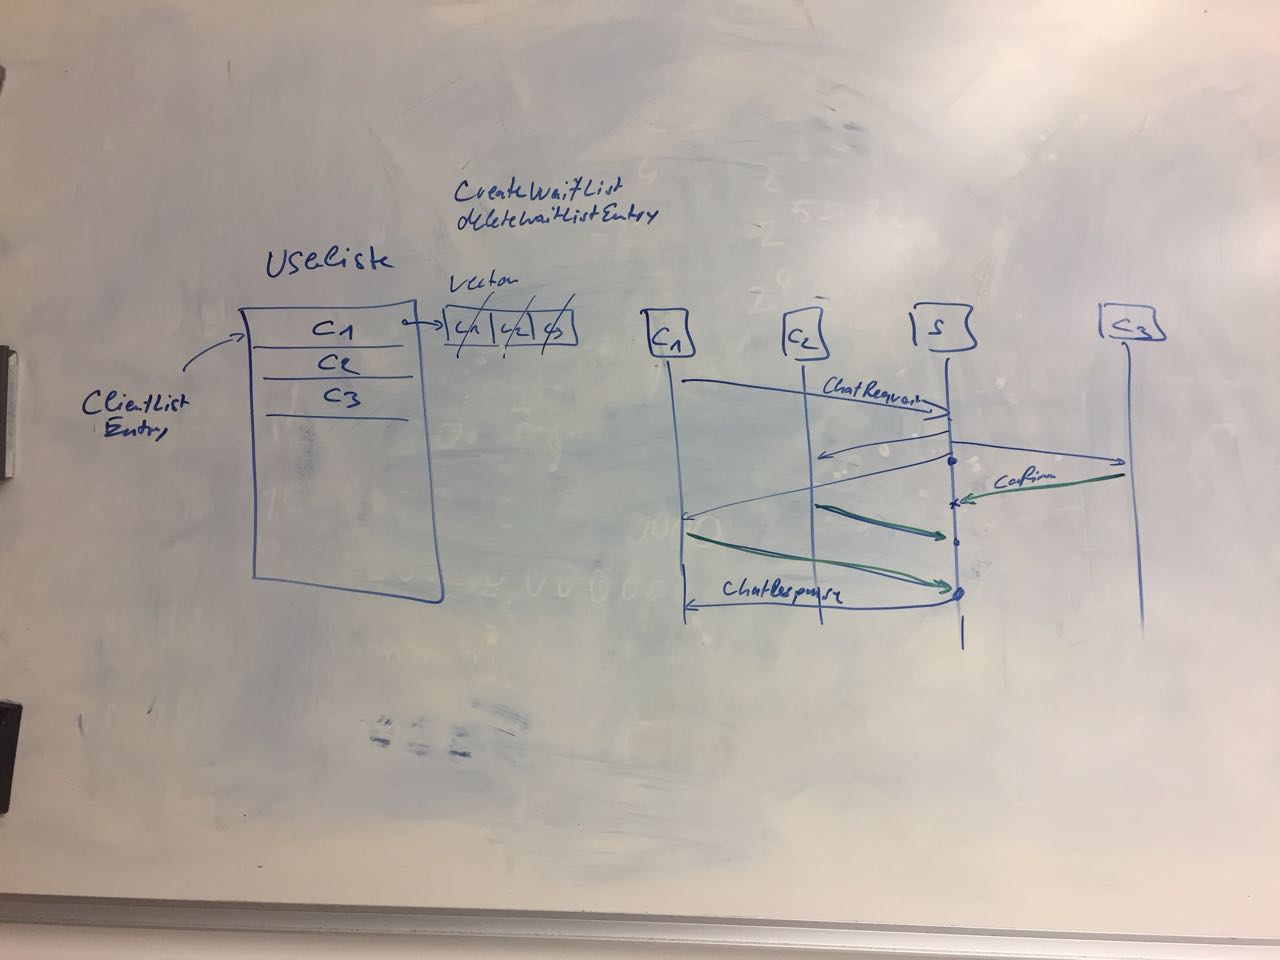 CreateWaitList
deleteWaitListEntry
Userliste
Vector
C1
C2
C3
C1 C2 C3
ClientList
Entry
C1
C2
S
C3
ChatRequest
Confirm
ChatResponse